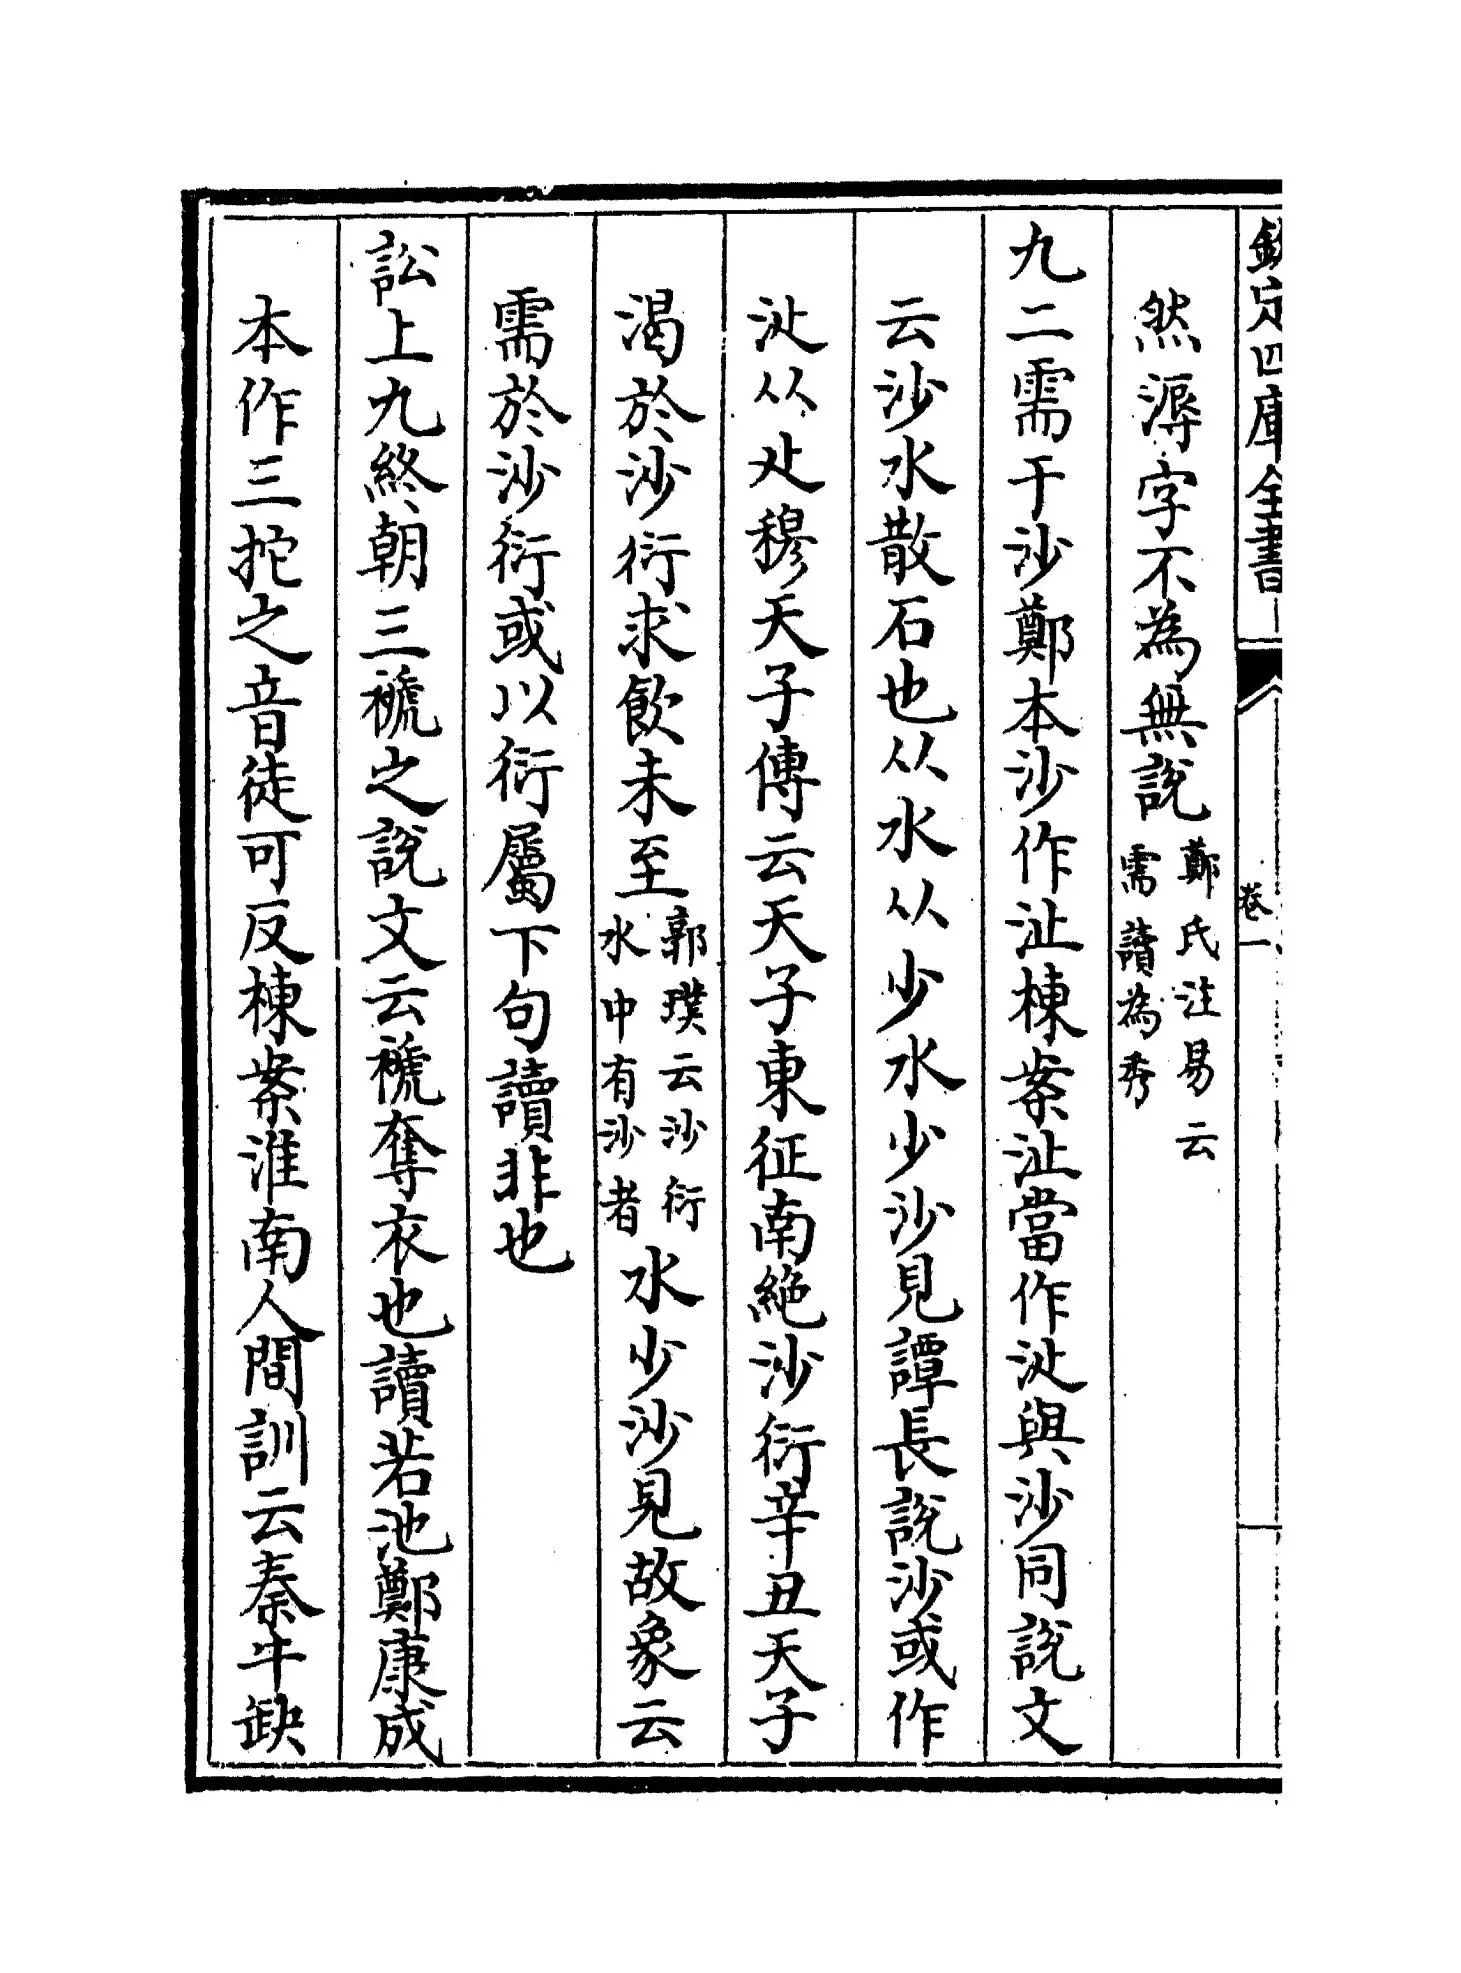 欽定四庫全書 卷一
然溽字不為無說鄭氏注易云
需讀為秀
九二需于沙鄭本沙作沚棟案沚當作𣲡與沙同說文
云沙水散石也从水从少水少沙見譚長說沙或作
𣲡从尐穆天子傳云天子東征南絶沙衍辛丑天子
渴於沙衍求飲未至郭璞云沙衍
水中有沙者水少沙見故象云
需於沙衍或以衍屬下句讀非也
訟上九終朝三褫之說文云褫奪衣也讀若池鄭康成
本作三拕之音徒可反棟案淮南人間訓云秦牛缺